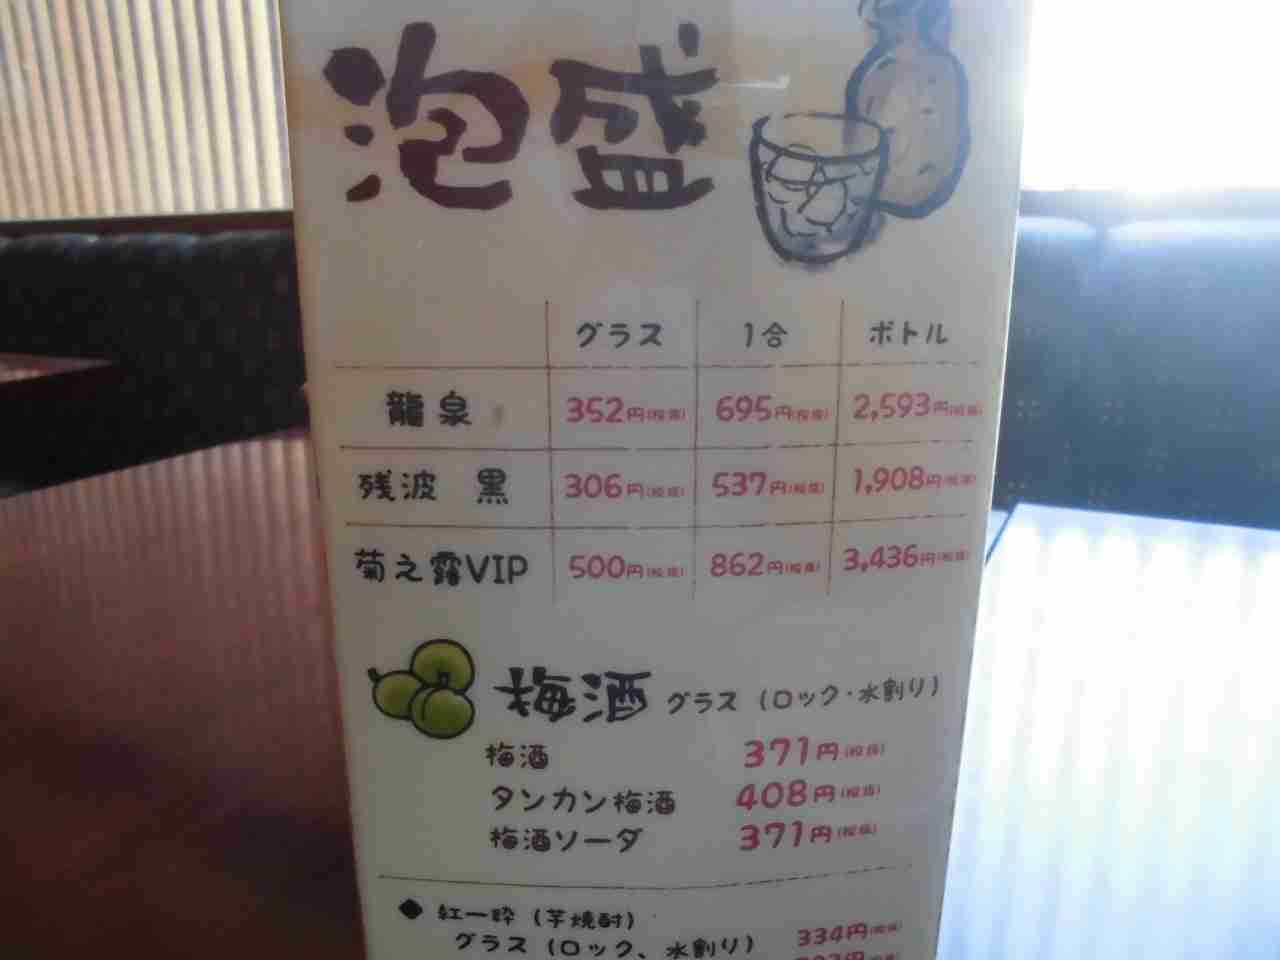 泡盛
グラス 1合 ボトル
龍泉 352円(税抜) 695円(税抜) 2,593円(税抜)
残波 黒 306円(税抜) 537円(税抜) 1,908円(税抜)
菊之露VIP 500円(税抜) 862円(税抜) 3,436円(税抜)
梅酒 グラス (ロック・水割り)
梅酒 371円(税抜)
タンカン梅酒 408円(税抜)
梅酒ソーダ 371円(税抜)
◆ 紅一粋 (芋焼酎)
グラス (ロック、水割り) 334円(税抜)